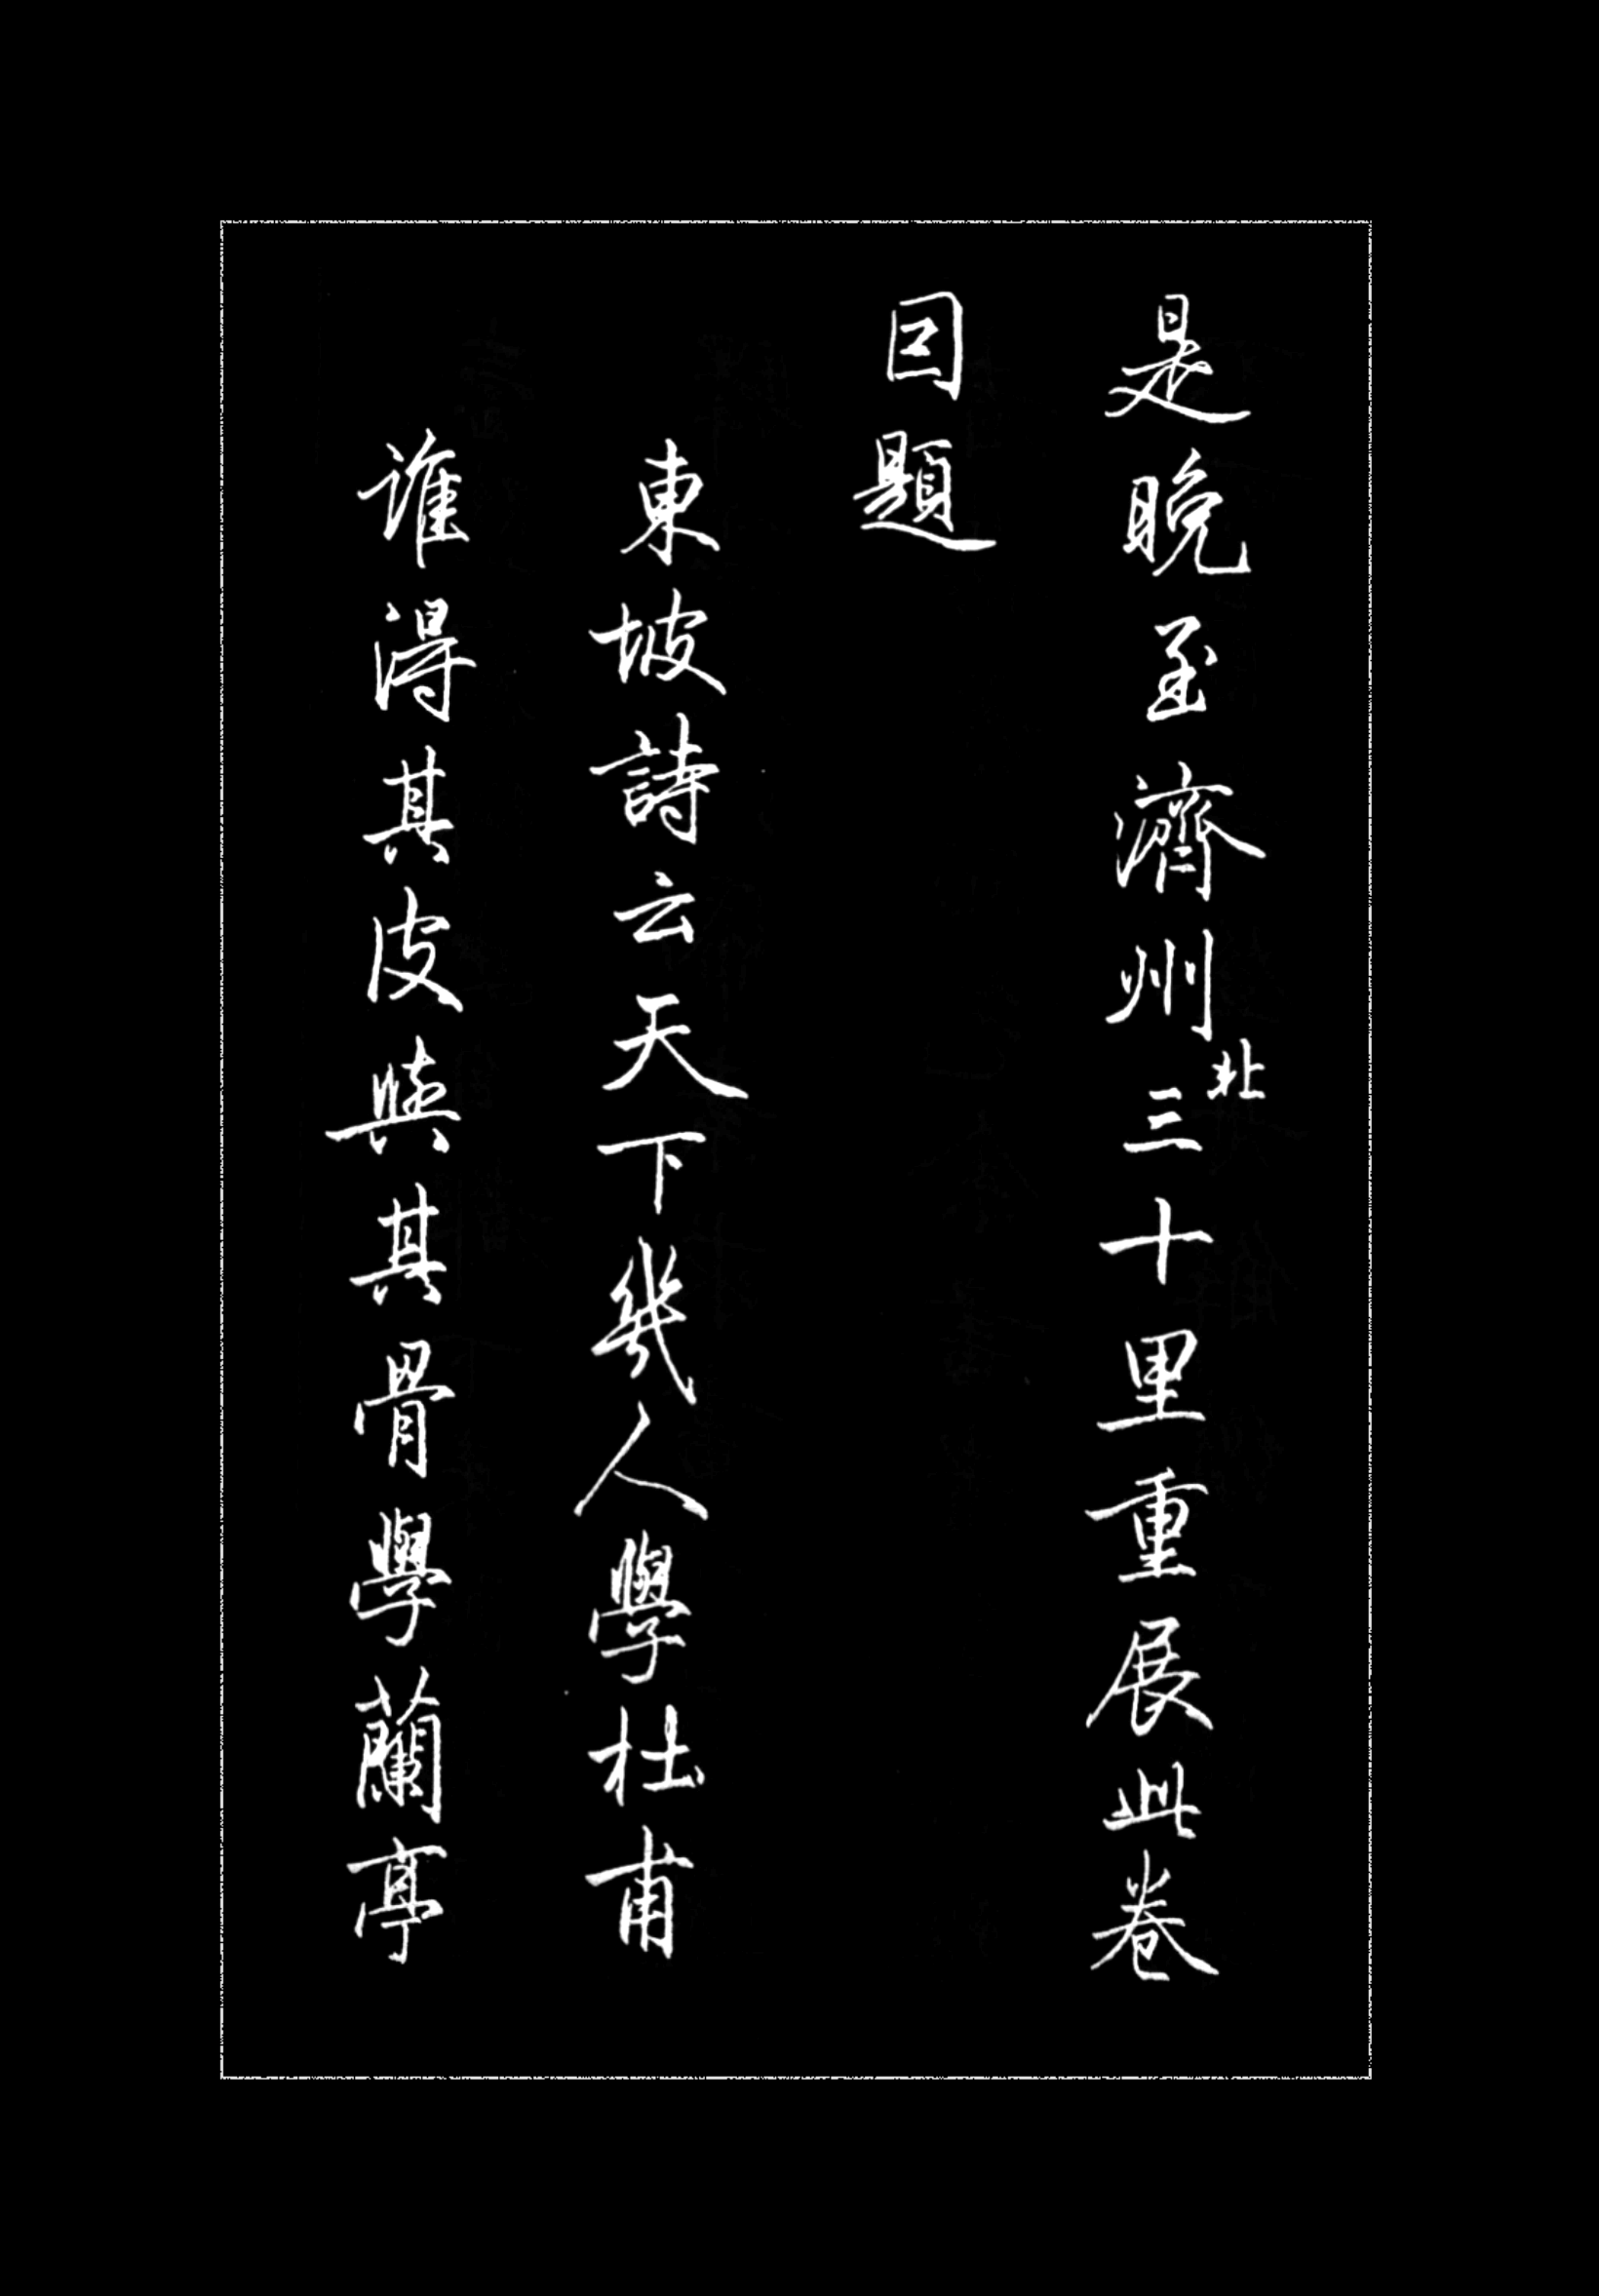 是晚至濟州北三十里重展此卷
因題
東坡詩云天下幾人學杜甫
誰得其皮與其骨學蘭亭